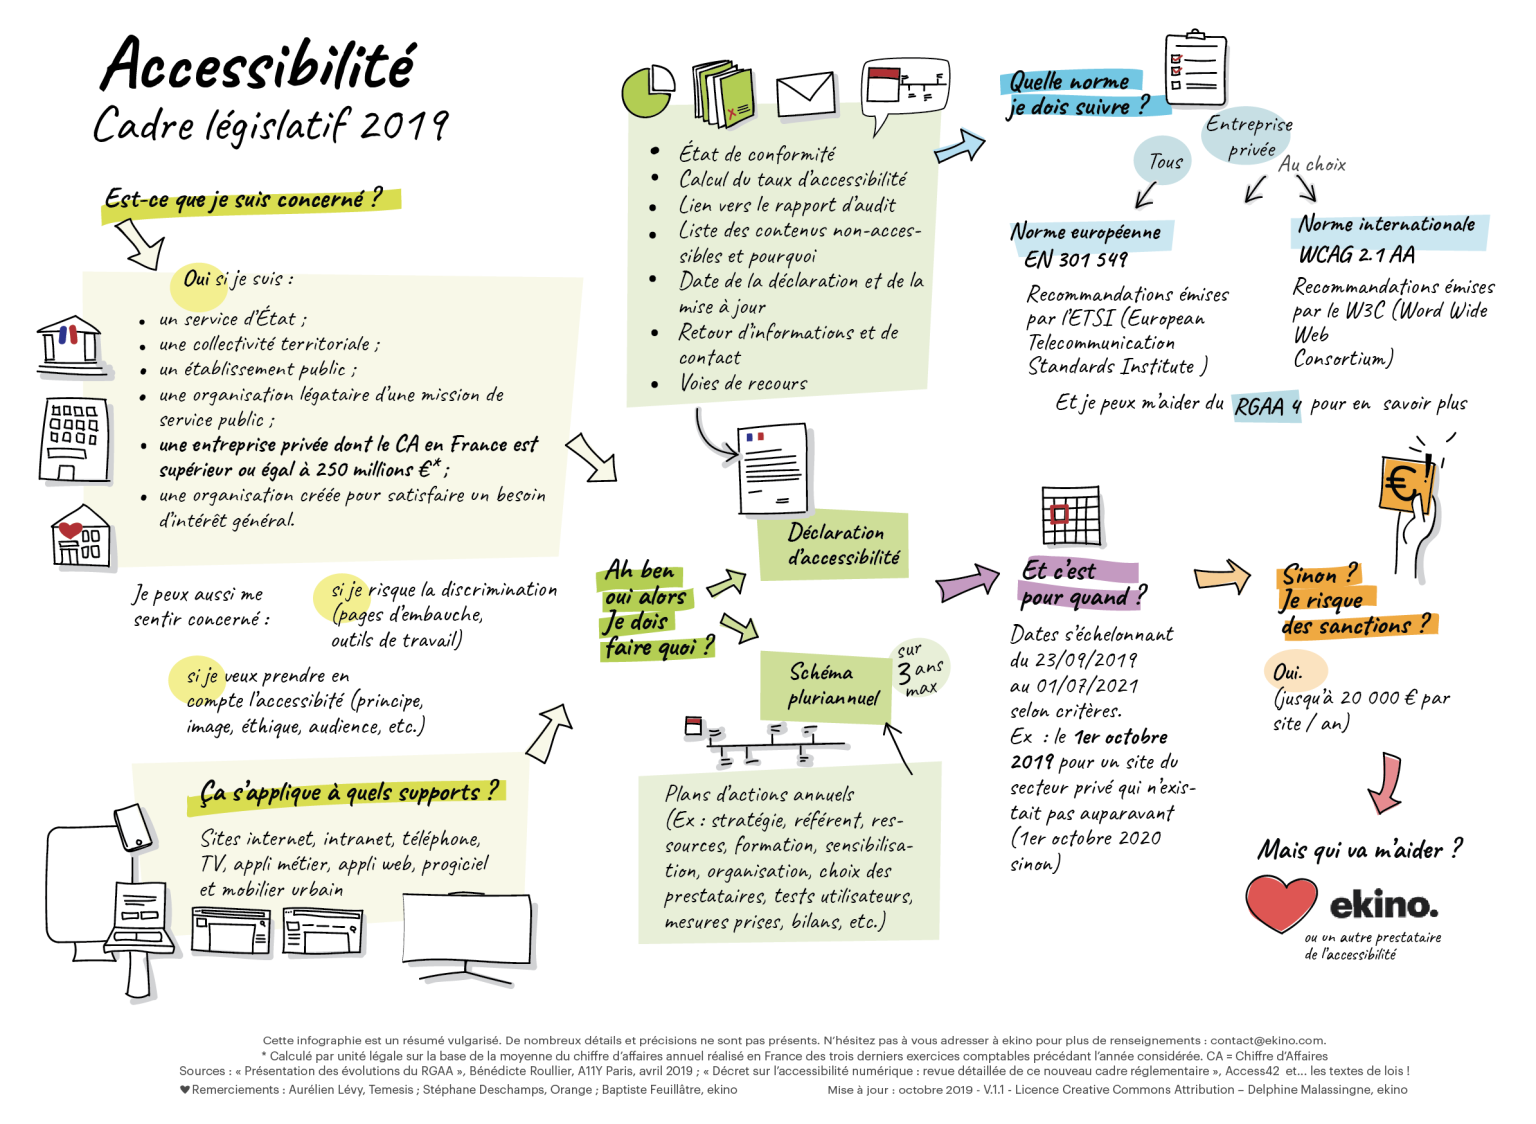 Accessibilité
Cadre législatif 2019
Est-ce que je suis concerné ?
Oui si je suis :
• un service d'État ;
• une collectivité territoriale ;
• un établissement public ;
• une organisation légataire d'une mission de
service public ;
• une entreprise privée dont le CA en France est
supérieur ou égal à 250 millions €* ;
• une organisation créée pour satisfaire un besoin
d'intérêt général.
Je peux aussi me
sentir concerné :
si je risque la discrimination
(pages d'embauche,
outils de travail)
si je veux prendre en
compte l'accessibité (principe,
image, éthique, audience, etc.)
Ça s'applique à quels supports ?
Sites internet, intranet, téléphone,
TV, appli métier, appli web, progiciel
et mobilier urbain
Ah ben
oui alors
Je dois
faire quoi ?
• État de conformité
• Calcul du taux d'accessibilité
• Lien vers le rapport d'audit
• Liste des contenus non-acces-
sibles et pourquoi
• Date de la déclaration et de la
mise à jour
• Retour d'informations et de
contact
• Voies de recours
Déclaration
d'accessibilité
Schéma
pluriannuel
sur
3 ans
max
Plans d'actions annuels
(Ex : stratégie, référent, res-
sources, formation, sensibilisa-
tion, organisation, choix des
prestataires, tests utilisateurs,
mesures prises, bilans, etc.)
Quelle norme
je dois suivre ?
Tous
Entreprise
privée
Au choix
Norme européenne
EN 301 549
Recommandations émises
par l'ETSI (European
Telecommunication
Standards Institute )
Norme internationale
WCAG 2.1 AA
Recommandations émises
par le W3C (Word Wide
Web
Consortium)
Et je peux m'aider du RGAA 4 pour en savoir plus
Et c'est
pour quand ?
Dates s'échelonnant
du 23/09/2019
au 01/07/2021
selon critères.
Ex : le 1er octobre
2019 pour un site du
secteur privé qui n'exis-
tait pas auparavant
(1er octobre 2020
sinon)
€ !
Sinon ?
Je risque
des sanctions ?
Oui.
(jusqu'à 20 000 € par
site / an)
Mais qui va m'aider ?
ekino.
ou un autre prestataire
de l'accessibilité
Cette infographie est un résumé vulgarisé. De nombreux détails et précisions ne sont pas présents. N'hésitez pas à vous adresser à ekino pour plus de renseignements : contact@ekino.com.
* Calculé par unité légale sur la base de la moyenne du chiffre d'affaires annuel réalisé en France des trois derniers exercices comptables précédant l'année considérée. CA = Chiffre d'Affaires
Sources : « Présentation des évolutions du RGAA », Bénédicte Roullier, A11Y Paris, avril 2019 ; « Décret sur l'accessibilité numérique : revue détaillée de ce nouveau cadre réglementaire », Access42 et... les textes de lois !
♥ Remerciements : Aurélien Lévy, Temesis ; Stéphane Deschamps, Orange ; Baptiste Feuillâtre, ekino
Mise à jour : octobre 2019 - V.1.1 - Licence Creative Commons Attribution – Delphine Malassingne, ekino